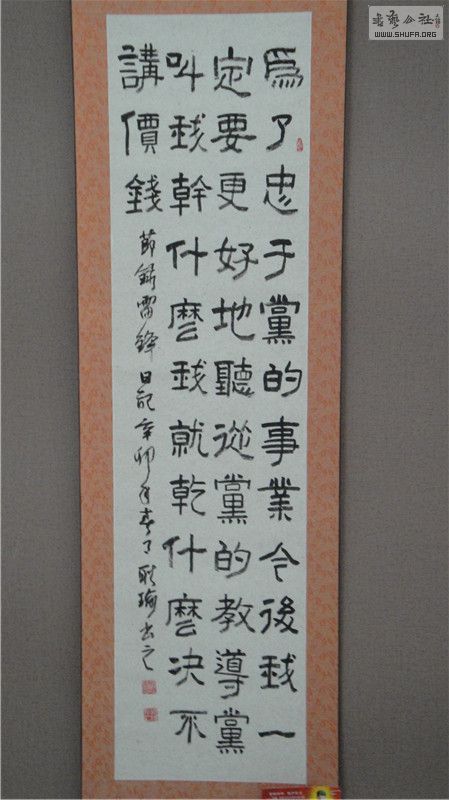 爲了忠于黨的事業今後我一
定要更好地聽從黨的教導黨
叫我幹什麽我就乾什麽决不
講價錢
節錄雷鋒日記辛卯年春
書之
書藝公社
WWW.SHUFA.ORG